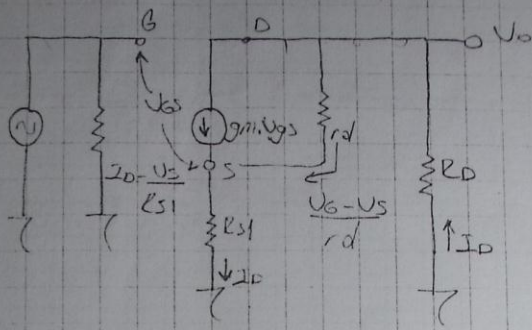 G
D
Vo
VGS
gm.Vgs
rd
S
ID = VS
RS1
VG - VS
rd
RD
RS1
ID
ID